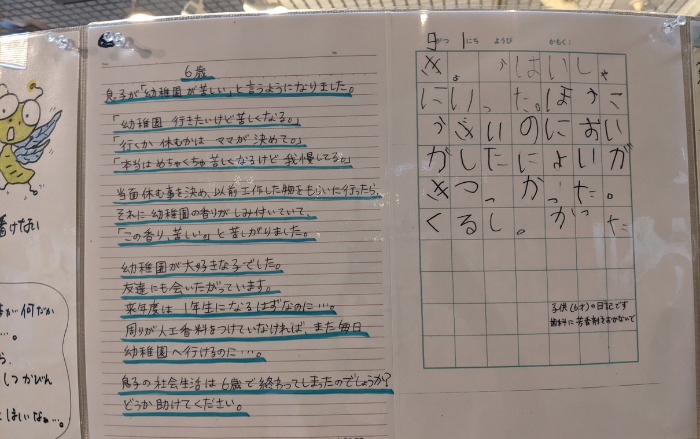 着けない
が何だか
…。
ら、
6歳
息子が「幼稚園が苦しい」と言うようになりました。
「幼稚園 行きたいけど苦しくなる。」
「行くか休むかは ママが決めて。」
「本当はめちゃくちゃ苦しくなるけど 我慢してる。」
当面休む事を決め、以前工作した物をもらいに行ったら、
それに幼稚園の香りがしみ付いていて、
「この香り、苦しい。」と苦しがりました。
幼稚園が大好きな子でした。
友達にも会いたがっています。
来年度は1年生になるはずなのに…。
周りが人工香料をつけていなければ、また毎日
幼稚園へ行けるのに…。
息子の社会生活は6歳で終わってしまったのでしょうか?
どうか助けてください。
9がつ 1にち ようび かもく:
きょうはいしゃ
にいった。ほうこ
うざいのにおい
がしたにょいが
きつっかった。
くるし。かった
子供(6才)の日記です
歯科に芳香剤をおかないで